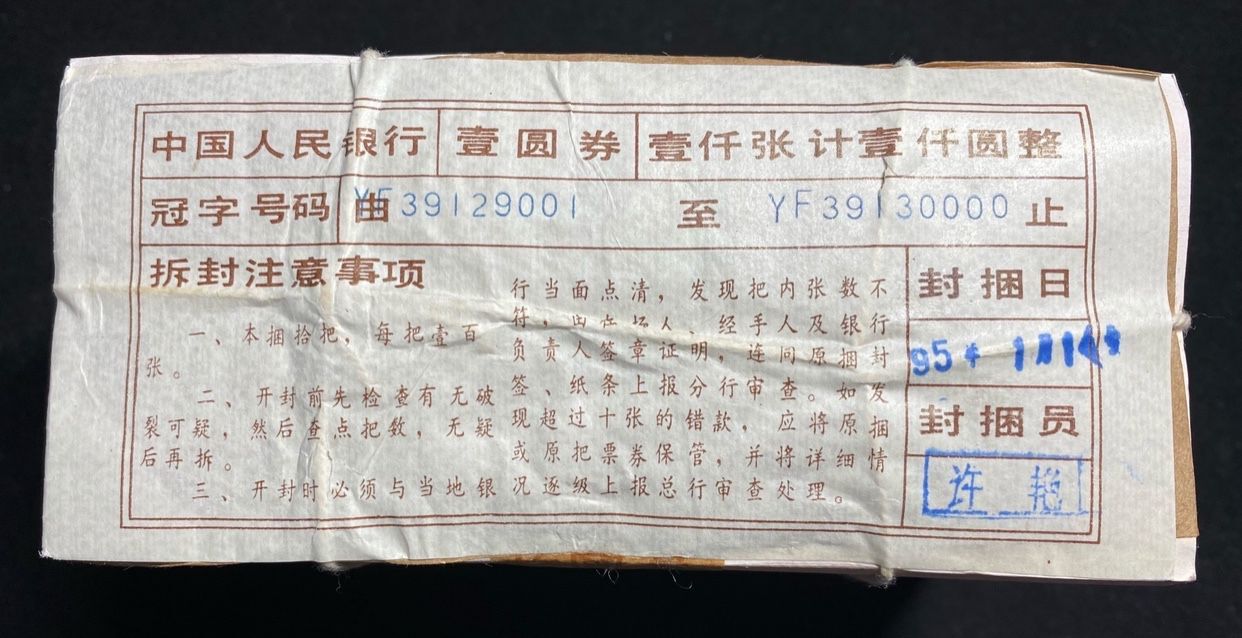 中国人民银行 壹圆券 壹仟张计壹仟圆整
冠字号码 由 YF39129001 至 YF39130000 止
拆封注意事项
一、本捆拾把，每把壹百
张。
二、开封前先检查有无破
裂可疑，然后查点把数，无疑
后再拆。
三、开封时必须与当地银
行当面点清，发现把内张数不
符，由在场人、经手人及银行
负责人签章证明，连同原捆封
签、纸条上报分行审查。如发
现超过十张的错款，应将原捆
或原把票券保管，并将详细情
况逐级上报总行审查处理。
封捆日
95年 1月14日
封捆员
许艳